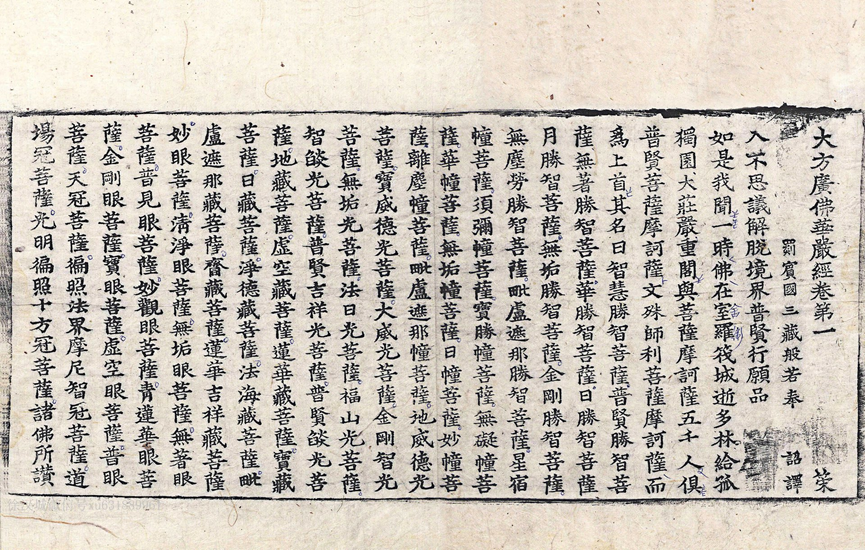 大方廣佛華嚴經卷第一 榮
罽賓國三藏般若奉 詔譯
入不思議解脫境界普賢行願品
如是我聞一時佛在室羅筏城逝多林給孤
獨園大莊嚴重閣與菩薩摩訶薩五千人俱
普賢菩薩摩訶薩文殊師利菩薩摩訶薩而
為上首其名曰智慧勝智菩薩普賢勝智菩
薩無著勝智菩薩華勝智菩薩日勝智菩薩
月勝智菩薩無垢勝智菩薩金剛勝智菩薩
無塵勞勝智菩薩毗盧遮那勝智菩薩星宿
幢菩薩須彌幢菩薩寶勝幢菩薩無礙幢菩
薩華幢菩薩無垢幢菩薩日幢菩薩妙幢菩
薩離塵幢菩薩毗盧遮那幢菩薩地威德光
菩薩寶威德光菩薩大威光菩薩金剛智光
菩薩無垢光菩薩法日光菩薩福山光菩薩
智燄光菩薩普賢吉祥光菩薩普賢燄光菩
薩地藏菩薩虛空藏菩薩蓮華藏菩薩寶藏
菩薩日藏菩薩淨德藏菩薩法海藏菩薩毗
盧遮那藏菩薩齎藏菩薩蓮華吉祥藏菩薩
妙眼菩薩清淨眼菩薩無垢眼菩薩無著眼
菩薩普見眼菩薩妙觀眼菩薩青蓮華眼菩
薩金剛眼菩薩寶眼菩薩虛空眼菩薩普眼
菩薩天冠菩薩徧照法界摩尼智冠菩薩道
場冠菩薩光明徧照十方冠菩薩諸佛所讚